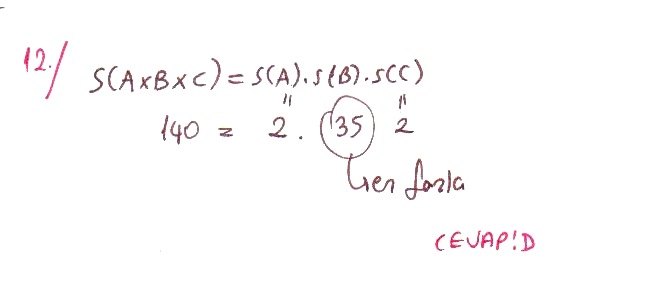 12./ S(A×B×C) = S(A).S(B).S(C)
" "
140 = 2 . 35 2
en fazla
CEVAP: D